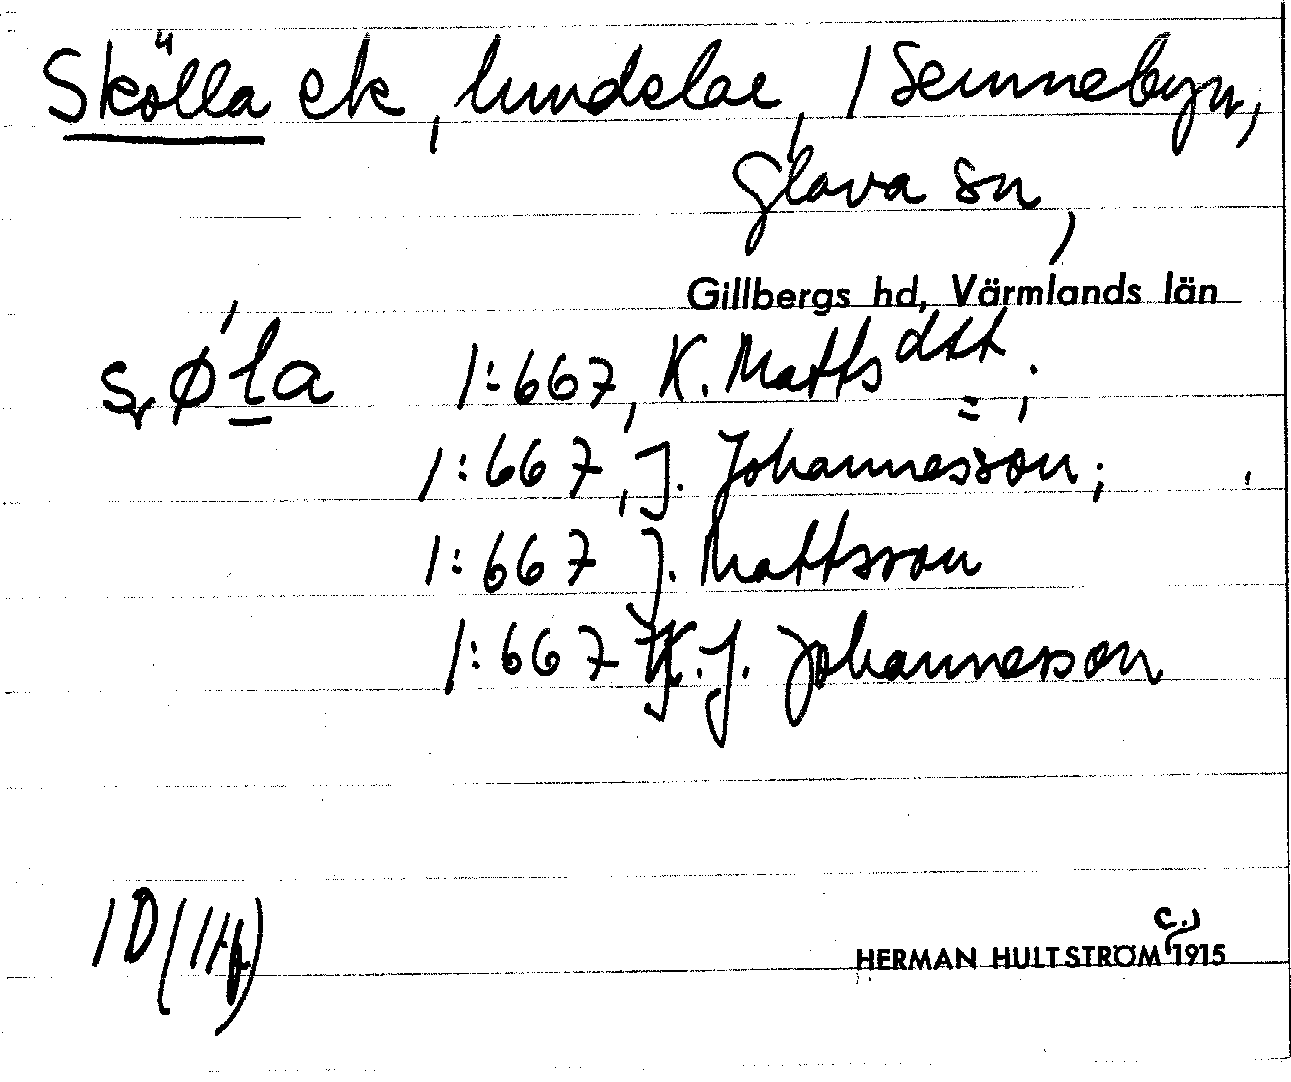 Skölla ek, lundelar, 1 Sennebyn,
Glava sn,
Gillbergs hd, Värmlands län
1:667, K. Mattsdtt;
1:667, J. Johannesson;
1:667 J. Mattsson
1:667 K.J. Johannesson
HERMAN HULTSTRÖM c. 1915